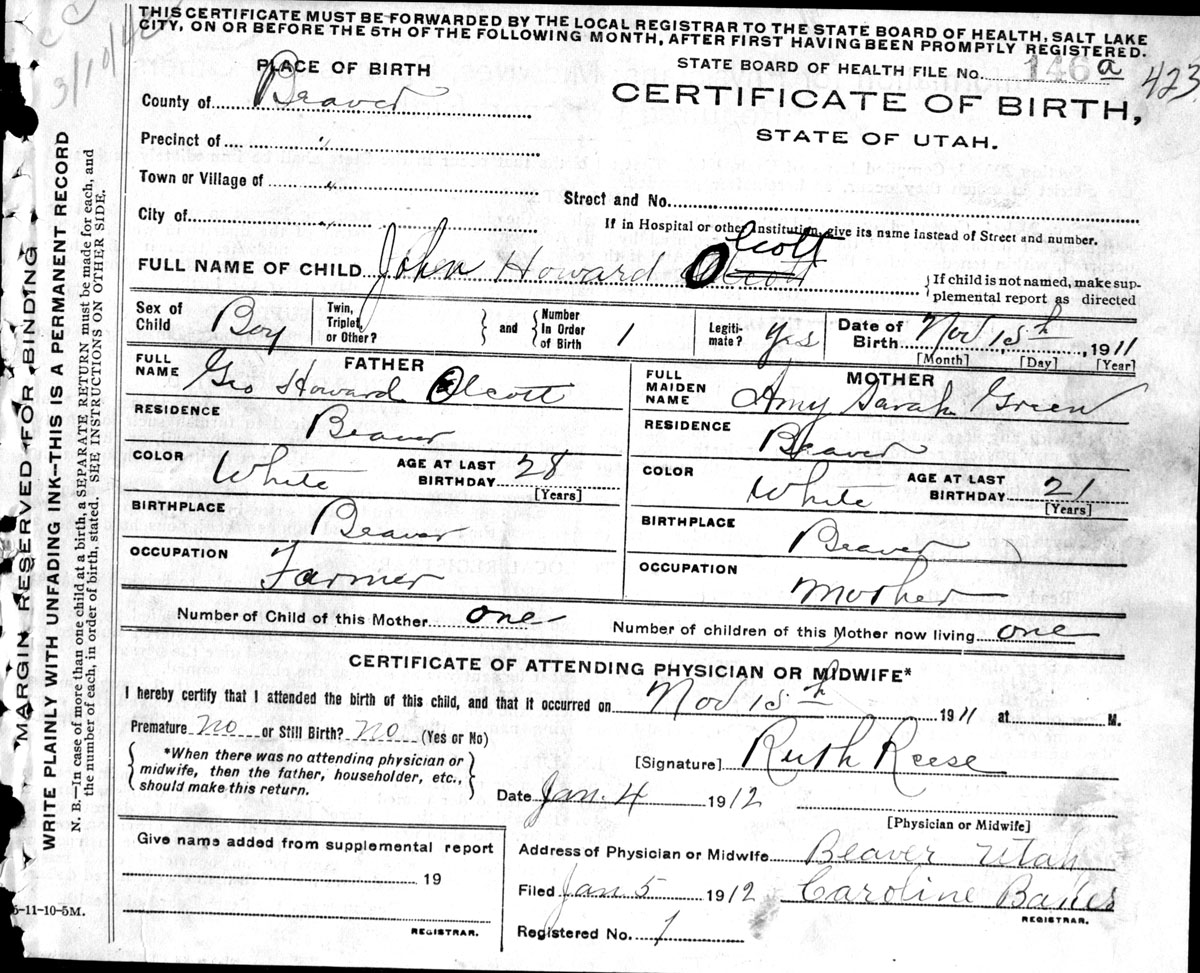 THIS CERTIFICATE MUST BE FORWARDED BY THE LOCAL REGISTRAR TO THE STATE BOARD OF HEALTH, SALT LAKE
CITY, ON OR BEFORE THE 5TH OF THE FOLLOWING MONTH, AFTER FIRST HAVING BEEN PROMPTLY REGISTERED.
PLACE OF BIRTH
STATE BOARD OF HEALTH FILE No. 146 a 423
County of Beaver
CERTIFICATE OF BIRTH,
STATE OF UTAH.
Precinct of "
Town or Village of "
Street and No.
City of "
If in Hospital or other Institution, give its name instead of Street and number.
Olcott
FULL NAME OF CHILD John Howard
If child is not named, make sup-
plemental report as directed
Sex of Child Boy Twin, Triplet, or Other? and Number In Order of Birth 1 Legiti-mate? Yes Date of Birth Nov 15th, 1911
[Month] [Day] [Year]
FULL NAME FATHER
Geo Howard Olcott
FULL MAIDEN NAME MOTHER
Amy Sarah Green
RESIDENCE Beaver
RESIDENCE Beaver
COLOR White AGE AT LAST BIRTHDAY 28 [Years]
COLOR White AGE AT LAST BIRTHDAY 21 [Years]
BIRTHPLACE Beaver
BIRTHPLACE Beaver
OCCUPATION Farmer
OCCUPATION Mother
Number of Child of this Mother one
Number of children of this Mother now living one
CERTIFICATE OF ATTENDING PHYSICIAN OR MIDWIFE*
I hereby certify that I attended the birth of this child, and that it occurred on Nov 15th 1911 at M.
Premature no or Still Birth? no (Yes or No)
*When there was no attending physician or
midwife, then the father, householder, etc.,
should make this return.
[Signature] Ruth Reese
Date Jan. 4 1912
[Physician or Midwife]
Give name added from supplemental report
19
REGISTRAR.
Address of Physician or Midwife Beaver Utah
Filed Jan 5 1912 Caroline
REGISTRAR.
Registered No. 1
5-11-10-5M.
MARGIN RESERVED FOR BINDING
WRITE PLAINLY WITH UNFADING INK—THIS IS A PERMANENT RECORD
N. B.—In case of more than one child at a birth, a SEPARATE RETURN must be made for each, and
the number of each, in order of birth, stated. SEE INSTRUCTIONS ON OTHER SIDE.